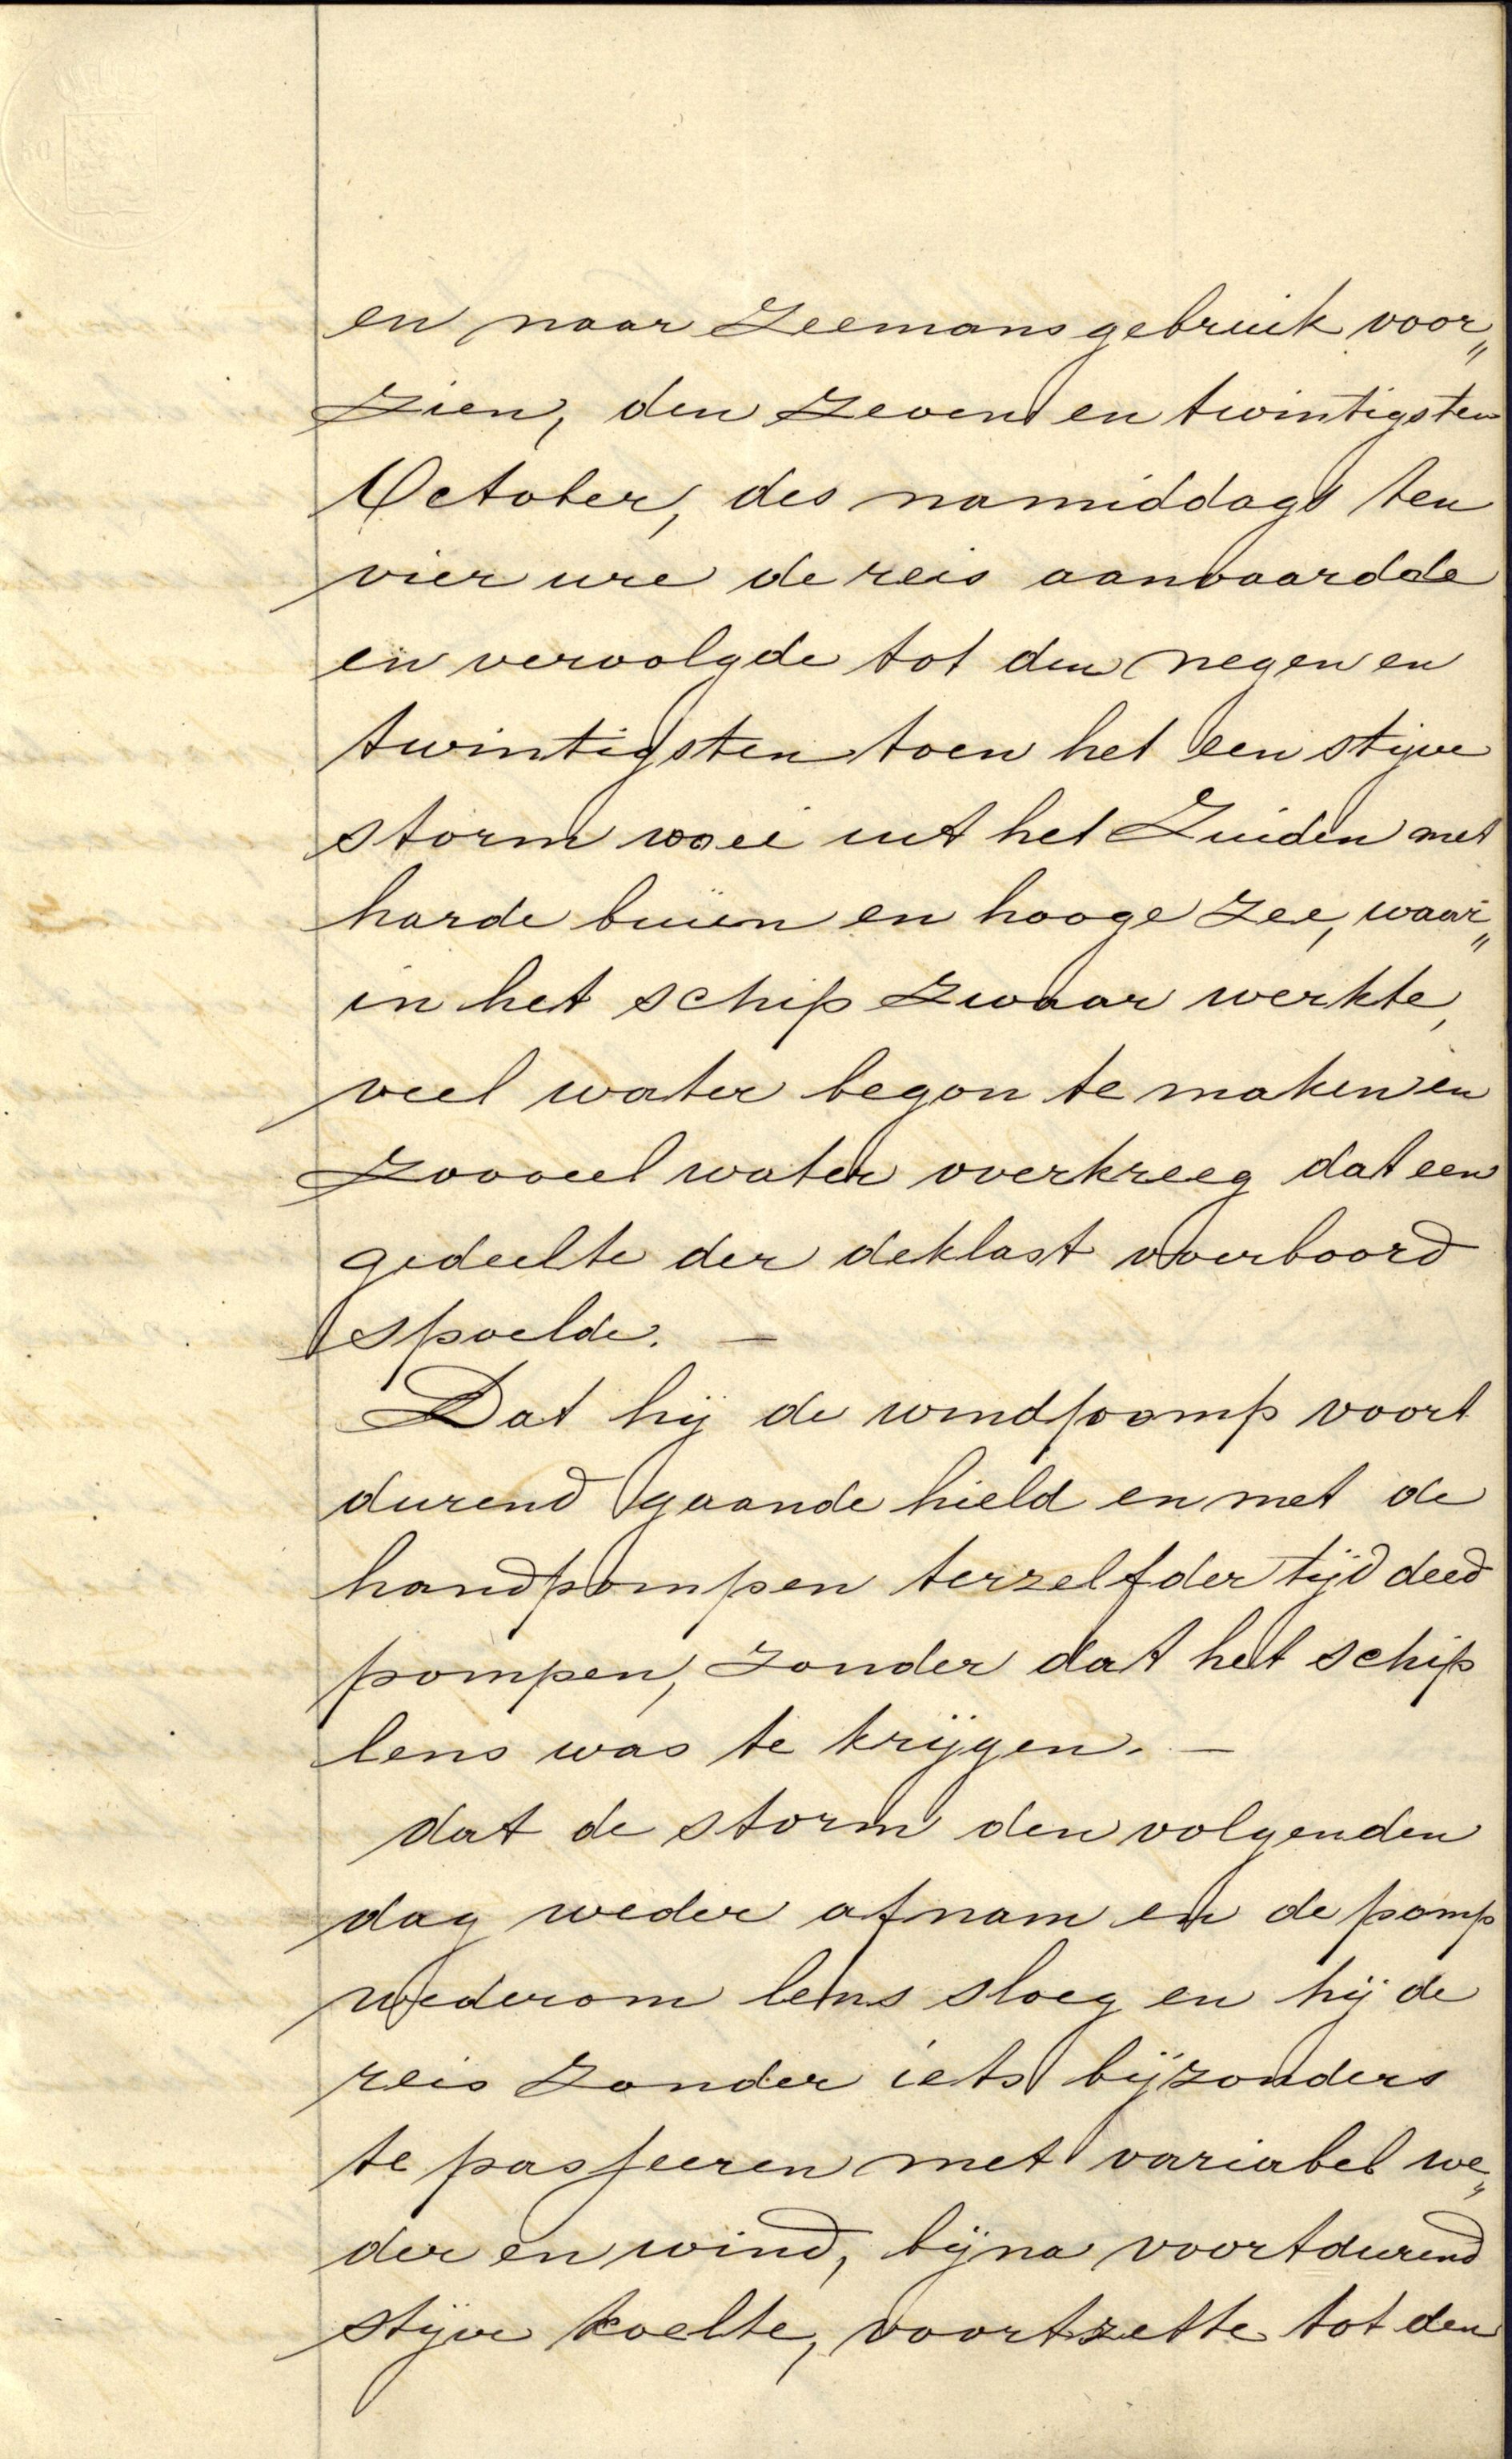 en naar Zeemansgebruik voor„
zien, den zeven en twintigsten
October, des namiddags ten
vier ure de reis aanvaardde
en vervolgde tot den negen en
twintigsten toen het een stijve
storm woei uit het Zuiden met
harde buien en hooge zee, waar„
in het schip zwaar werkte,
veel water begon te maken en
zooveel water overkreeg dat een
gedeelte der deklast overboord
spoelde. —
Dat hij de windpomp voort
durend gaande hield en met de
handpompen terzelfder tijd deed
pompen, zonder dat het schip
lens was te krijgen. —
dat de storm den volgenden
dag weder afnam en de pomp
wederom lens sloeg en hij de
reis zonder iets bijzonders
te passeeren met variabel we„
der en wind, bijna voortdurend
stijve koelte, voortzette tot den